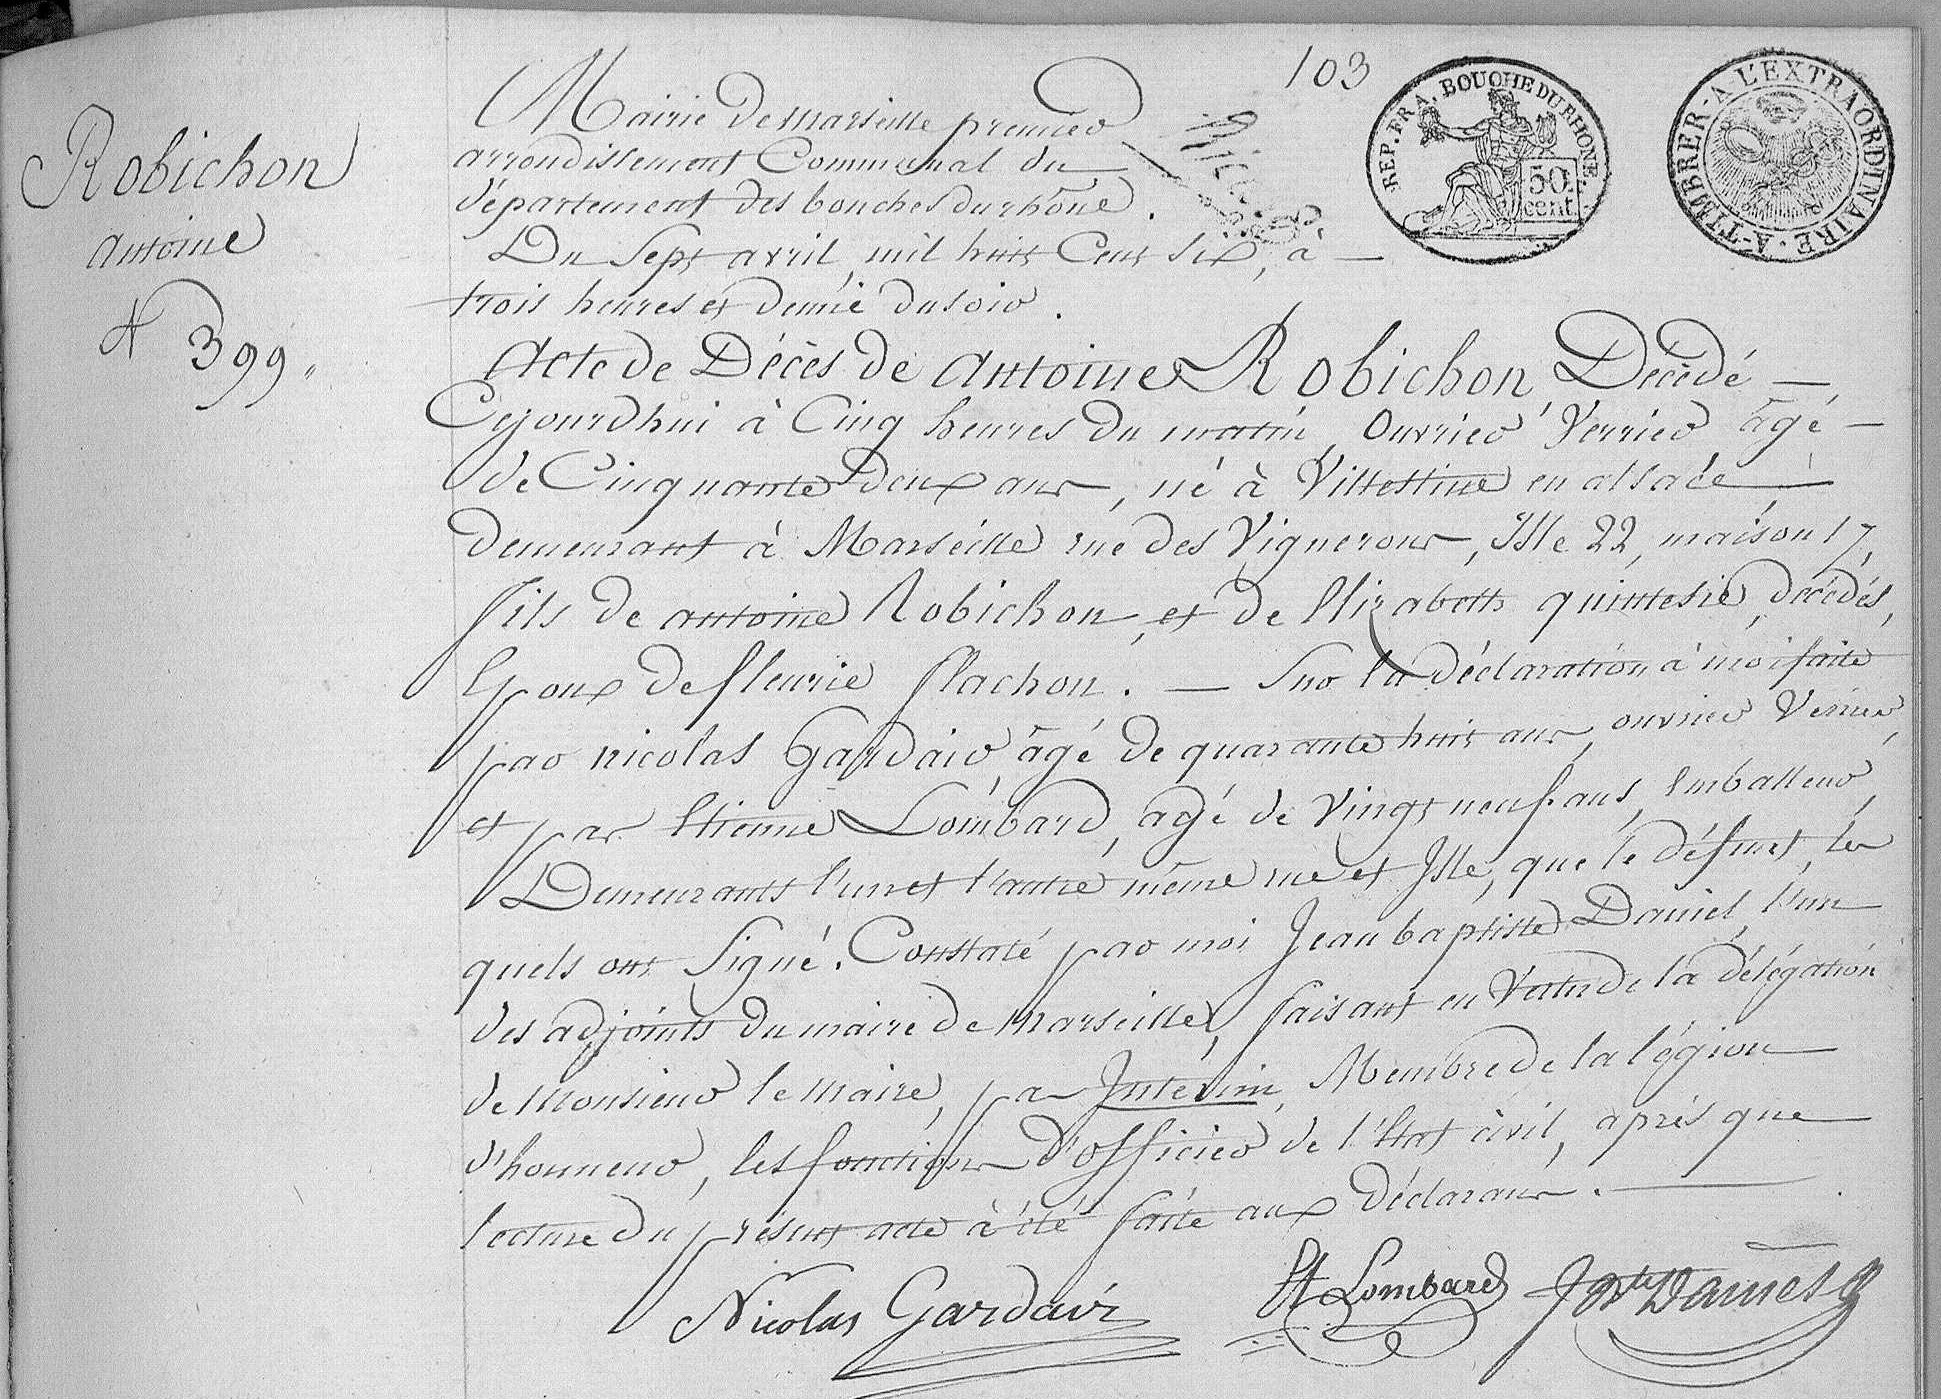 103
REP. FRA. BOUCHE DU RHONE.
50 cent
A-TIMBRER-A L'EXTRAORDINAIRE.
Robichon
antoine
N 399.
Mairie de marseille premier
arrondissement Communal du
département des bouches du rhône.
Du Sept avril, mil huit Cent Six, à
trois heures et demie du soir.
Acte de Décès de Antoine Robichon Décédé
Cejourdhui à Cinq heures du matin, Ouvrier Verrier âgé
de Cinquante Deux ans, né à Villestine en alsace
demeurant à Marseille rue des Vignerons, Isle 22, maison 17,
fils de antoine Robichon, et de Elizabeth quintesie, décédés,
Epoux de fleurie flachon. — Sur la déclaration à moi faite
par nicolas Gardair, âgé de quarante huit ans, ouvrier Verrier,
et par Etienne Lombard, agé de Vingt neuf ans, Emballeur,
Demeurants l'un et l'autre même rue et Isle, que le défunt, les
quels ont Signé. Constaté par moi Jean baptiste Daniel, l'un
des adjoints du maire de Marseille, faisant en Vertu de la délégation
de Monsieur le Maire, par Intérim, Membre de la légion
d'honneur, les fonctions D'officier de l'Etat civil, après que
lecture du présent acte à été faite aux Déclarans.
Nicolas Gardair
Et Lombard
J Bte Daniel